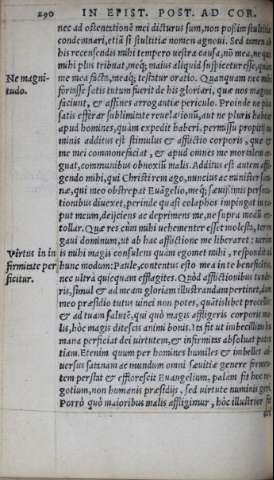 290 IN EPIST. POST. AD COR.
nec ad ostentationẽ mei dicturus sum, non possim stultitiæ
condemnari, etiã si stultitiæ nomen agnoui. Sed tamen ab
his recensendis mihi tempero uestra causa, nõ mea, ne quis
mihi plus tribuat, meq́; maius aliquid suspicetur esse, quàm
me mea facta, meaq́; testatur oratio. Quanquam nec mihi
Ne magni-
tudo.
satis tutum fuerit de his gloriari, quæ nos magnos
faciunt, & affines arrogantiæ periculo. Proinde ne plus
satis efferar sublimitate reuelationũ, aut ne pluris habear
apud homines, quàm expedit haberi, permissu propitij
minis additus est stimulus & afflictio corporis, quæ &
me mei commonefaciat, & apud omnes me mortalem
guat, communibus obnoxiũ malis. Additus est autem
gendo mihi, qui Christi rem ago, nuncius ac minister
næ, qui meo obstrepat Euãgelio, meq́; sæuissimis
tionibus diuexet, perinde quasi colaphos impingat in
put meum, deijciens ac deprimens me, ne supra modũ
tollar. Quæ res cùm mihi uehementer esset molesta, ter
gaui dominum, ut ab hac afflictione me liberaret: uerùm
is mihi magis consulens quàm egomet mihi, respondit
Virtus in in
firmitate per
ficitur.
hunc modum: Paule, contentus esto mea in te beneficentia
nec ultra quicquam efflagites. Quòd afflictionibus
ris, simul & ad meam gloriam illustrandam pertinet,
meo præsidio tutus uinci non potes, quãtislibet
& ad tuam salutẽ, qui quò magis affligeris corporis
lis, hòc magis ditescis animi bonis. Vt fit ut imbecillitas
mana perficiat dei uirtutem, & infirmitas absoluat
tiam. Etenim quum per homines humiles & imbelles
uersus satanam ac mundum omni sæuitiæ genere
tem perstat & efflorescit Euangelium, palàm fit hoc
gotium, non humanis præsidijs, sed uirtute numinis geri.
Porrò quò maioribus malis affligimur, hòc illustrior fit